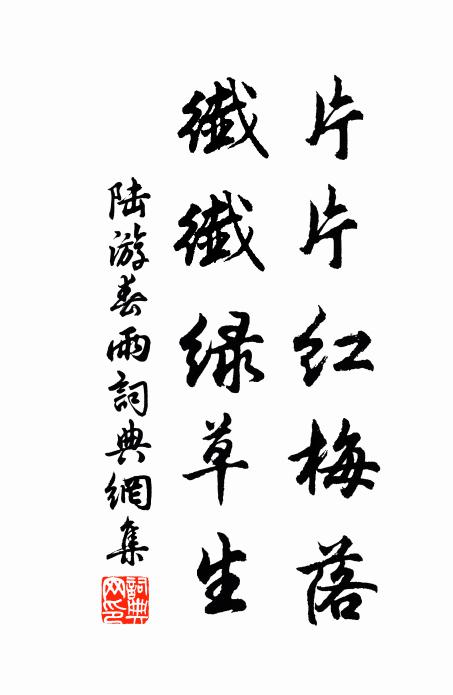 片片红梅落
纖纖绿草生
陆游春雨詞典網集
詞典網印